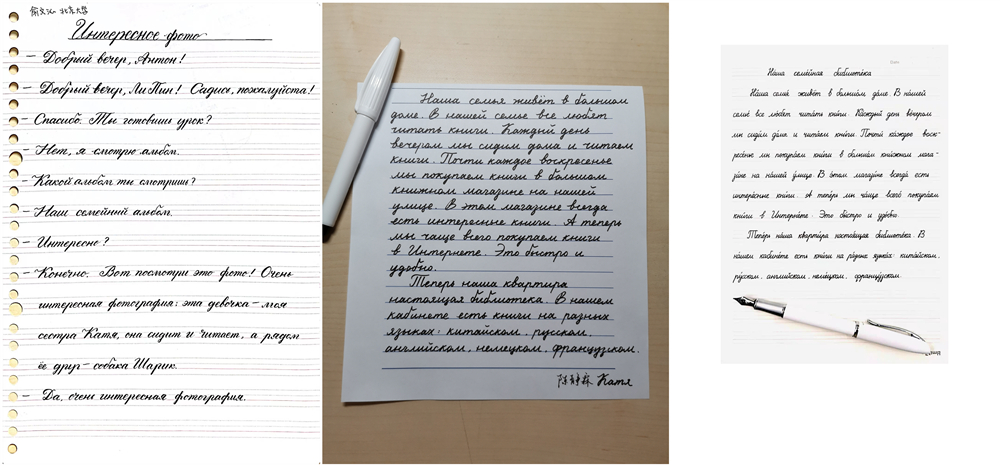 俞文沁 北京大学
Интересное фото
– Добрый вечер, Антон!
– Добрый вечер, Ли Пин! Садись, пожалуйста!
– Спасибо. Ты готовишь урок?
– Нет, я смотрю альбом.
– Какой альбом ты смотришь?
– Наш семейный альбом.
– Интересно?
– Конечно. Вот посмотри это фото! Очень
интересная фотография: эта девочка – моя
сестра Катя, она сидит и читает, а рядом
её друг – собака Шарик.
– Да, очень интересная фотография.
Наша семья живёт в большом
доме. В нашей семье все любят
читать книги. Каждый день
вечером мы сидим дома и читаем
книги. Почти каждое воскресенье
мы покупаем книги в большом
книжном магазине на нашей
улице. В этом магазине всегда
есть интересные книги. А теперь
мы чаще всего покупаем книги
в Интернете. Это быстро и
удобно.
Теперь наша квартира
настоящая библиотека. В нашем
кабинете есть книги на разных
языках: китайском, русском,
английском, немецком, французском.
Катя
Наша семейная библиоте́ка
Наша семья́ живёт в большо́м до́ме. В на́шей
семье́ все лю́бят чита́ть кни́ги. Ка́ждый день ве́чером
мы сиди́м до́ма и чита́ем кни́ги. Почти́ ка́ждое воск-
ресе́нье мы покупа́ем кни́ги в большо́м кни́жном мага-
зи́не на на́шей у́лице. В э́том магази́не всегда́ есть
интере́сные кни́ги. А тепе́рь мы ча́ще всего́ покупа́ем
кни́ги в Интерне́те. Э́то бы́стро и удо́бно.
Тепе́рь на́ша кварти́ра настоя́щая библиоте́ка. В
на́шем кабине́те есть кни́ги на ра́зных языка́х: кита́йском,
ру́сском, англи́йском, неме́цком, францу́зском.